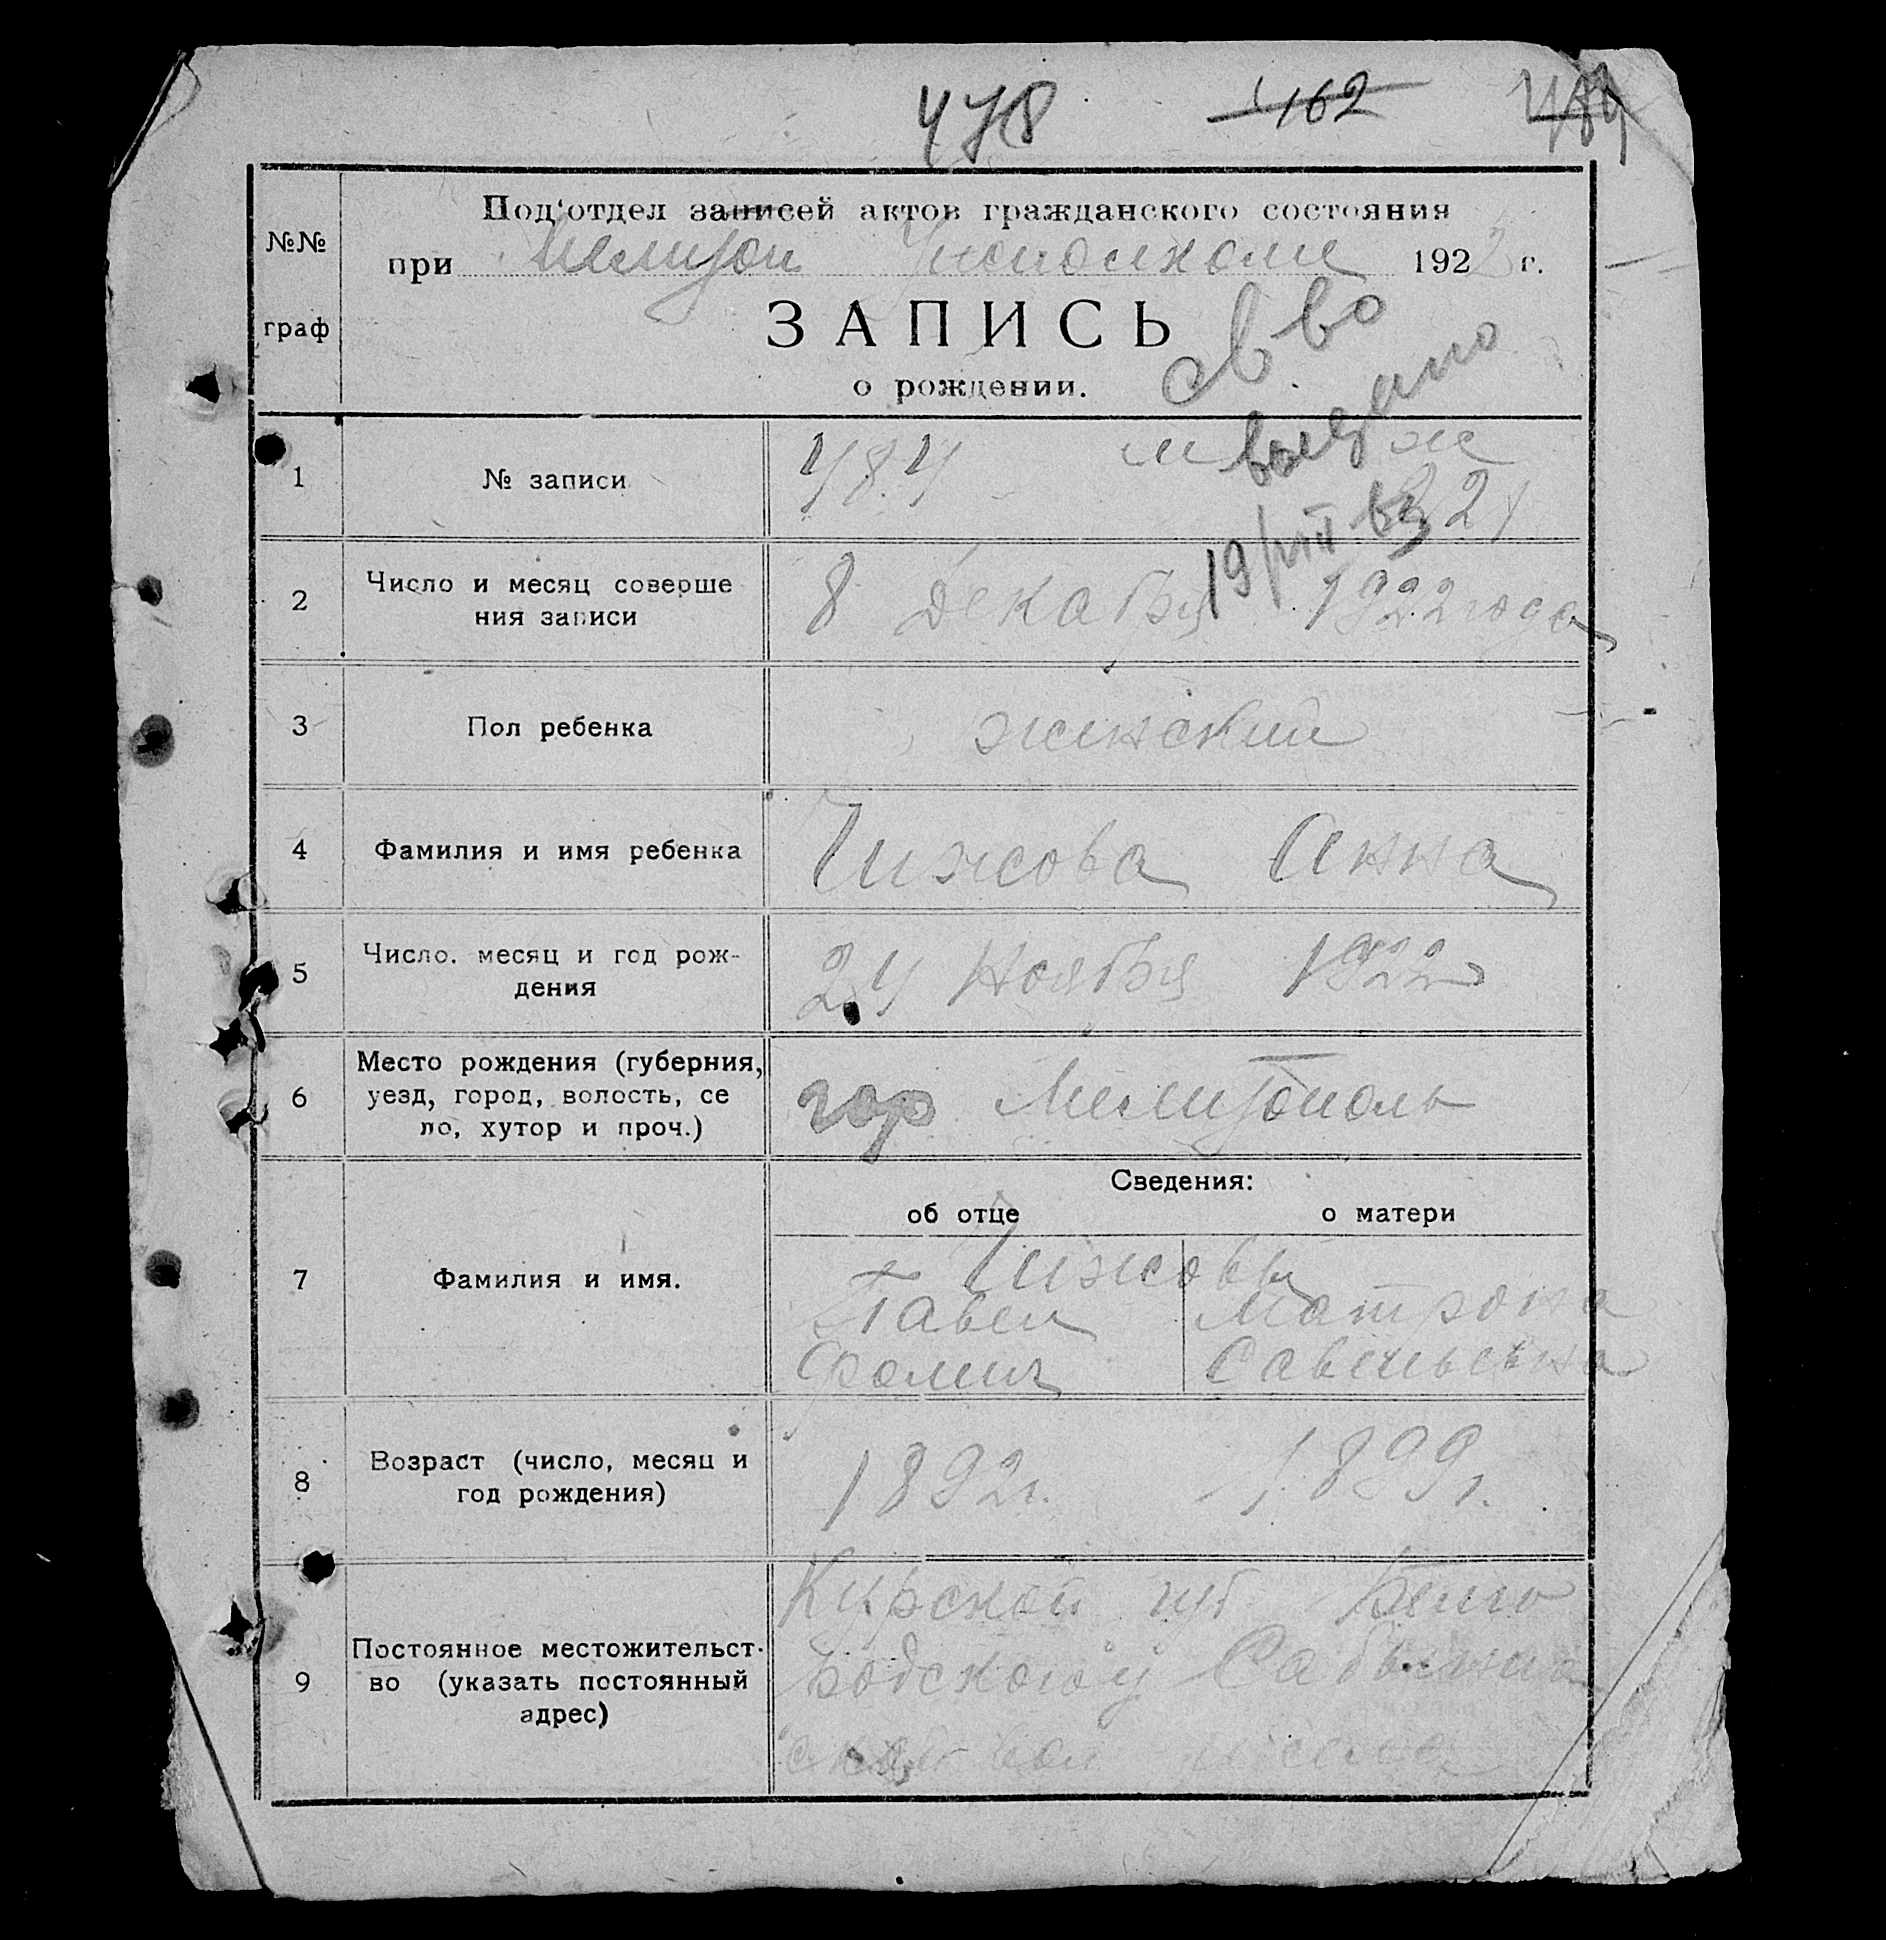 478 462 484
Под'отдел записей актов гражданского состояния
№№
при Мелитоп Уисполкоме 1922 г.
граф
ЗАПИСЬ
о рождении.
св во
выдано
19/VIII 63
1 № записи 484 м ж
2 Число и месяц соверше
ния записи
8 Декабря 1922 года
3 Пол ребенка женский
4 Фамилия и имя ребенка Чижова Анна
5 Число. месяц и год рож-
дения
24 Ноября 1922
6 Место рождения (губерния,
уезд, город, волость, се
ло, хутор и проч.)
гор Мелитополь
Сведения:
об отце о матери
7 Фамилия и имя.
Чижовы
Павел Матрона
Фомич Савельевна
8 Возраст (число, месяц и
год рождения)
1892г. 1899г.
9 Постоянное местожительст-
во (указать постоянный
адрес)
Курской губ Белго
родского у
вол села